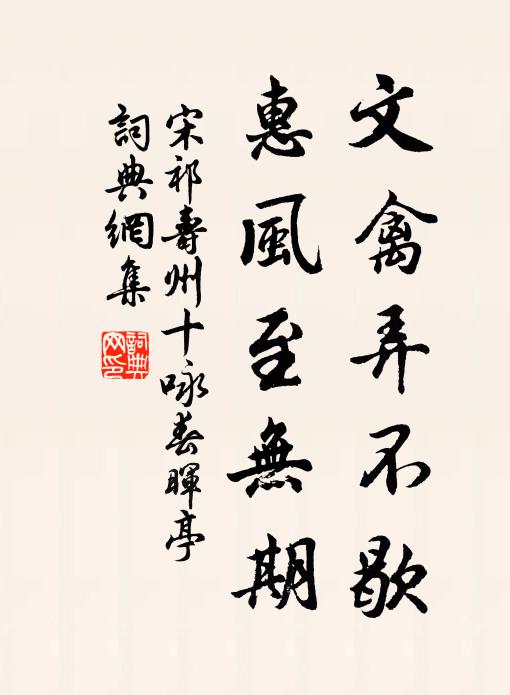 文禽弄不歇
惠風至無期
宋祁壽州十咏春暉亭
詞典網集
詞典網印